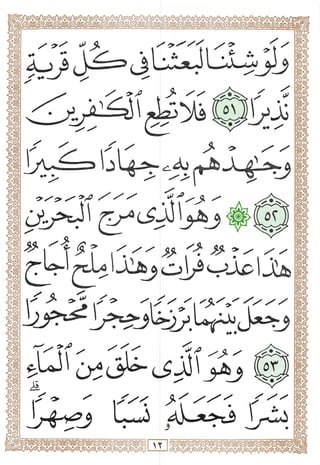 وَلَوْ شِئْنَا لَبَعَثْنَا فِي كُلِّ قَرْيَةٍ
نَّذِيرًا ٥١ فَلَا تُطِعِ ٱلْكَٰفِرِينَ
وَجَٰهِدْهُم بِهِۦ جِهَادًا كَبِيرًا
٥٢ وَهُوَ ٱلَّذِى مَرَجَ ٱلْبَحْرَيْنِ
هَٰذَا عَذْبٌ فُرَاتٌ وَهَٰذَا مِلْحٌ أُجَاجٌ
وَجَعَلَ بَيْنَهُمَا بَرْزَخًا وَحِجْرًا مَّحْجُورًا
٥٣ وَهُوَ ٱلَّذِى خَلَقَ مِنَ ٱلْمَآءِ
بَشَرًا فَجَعَلَهُۥ نَسَبًا وَصِهْرًا ۗ
١٢